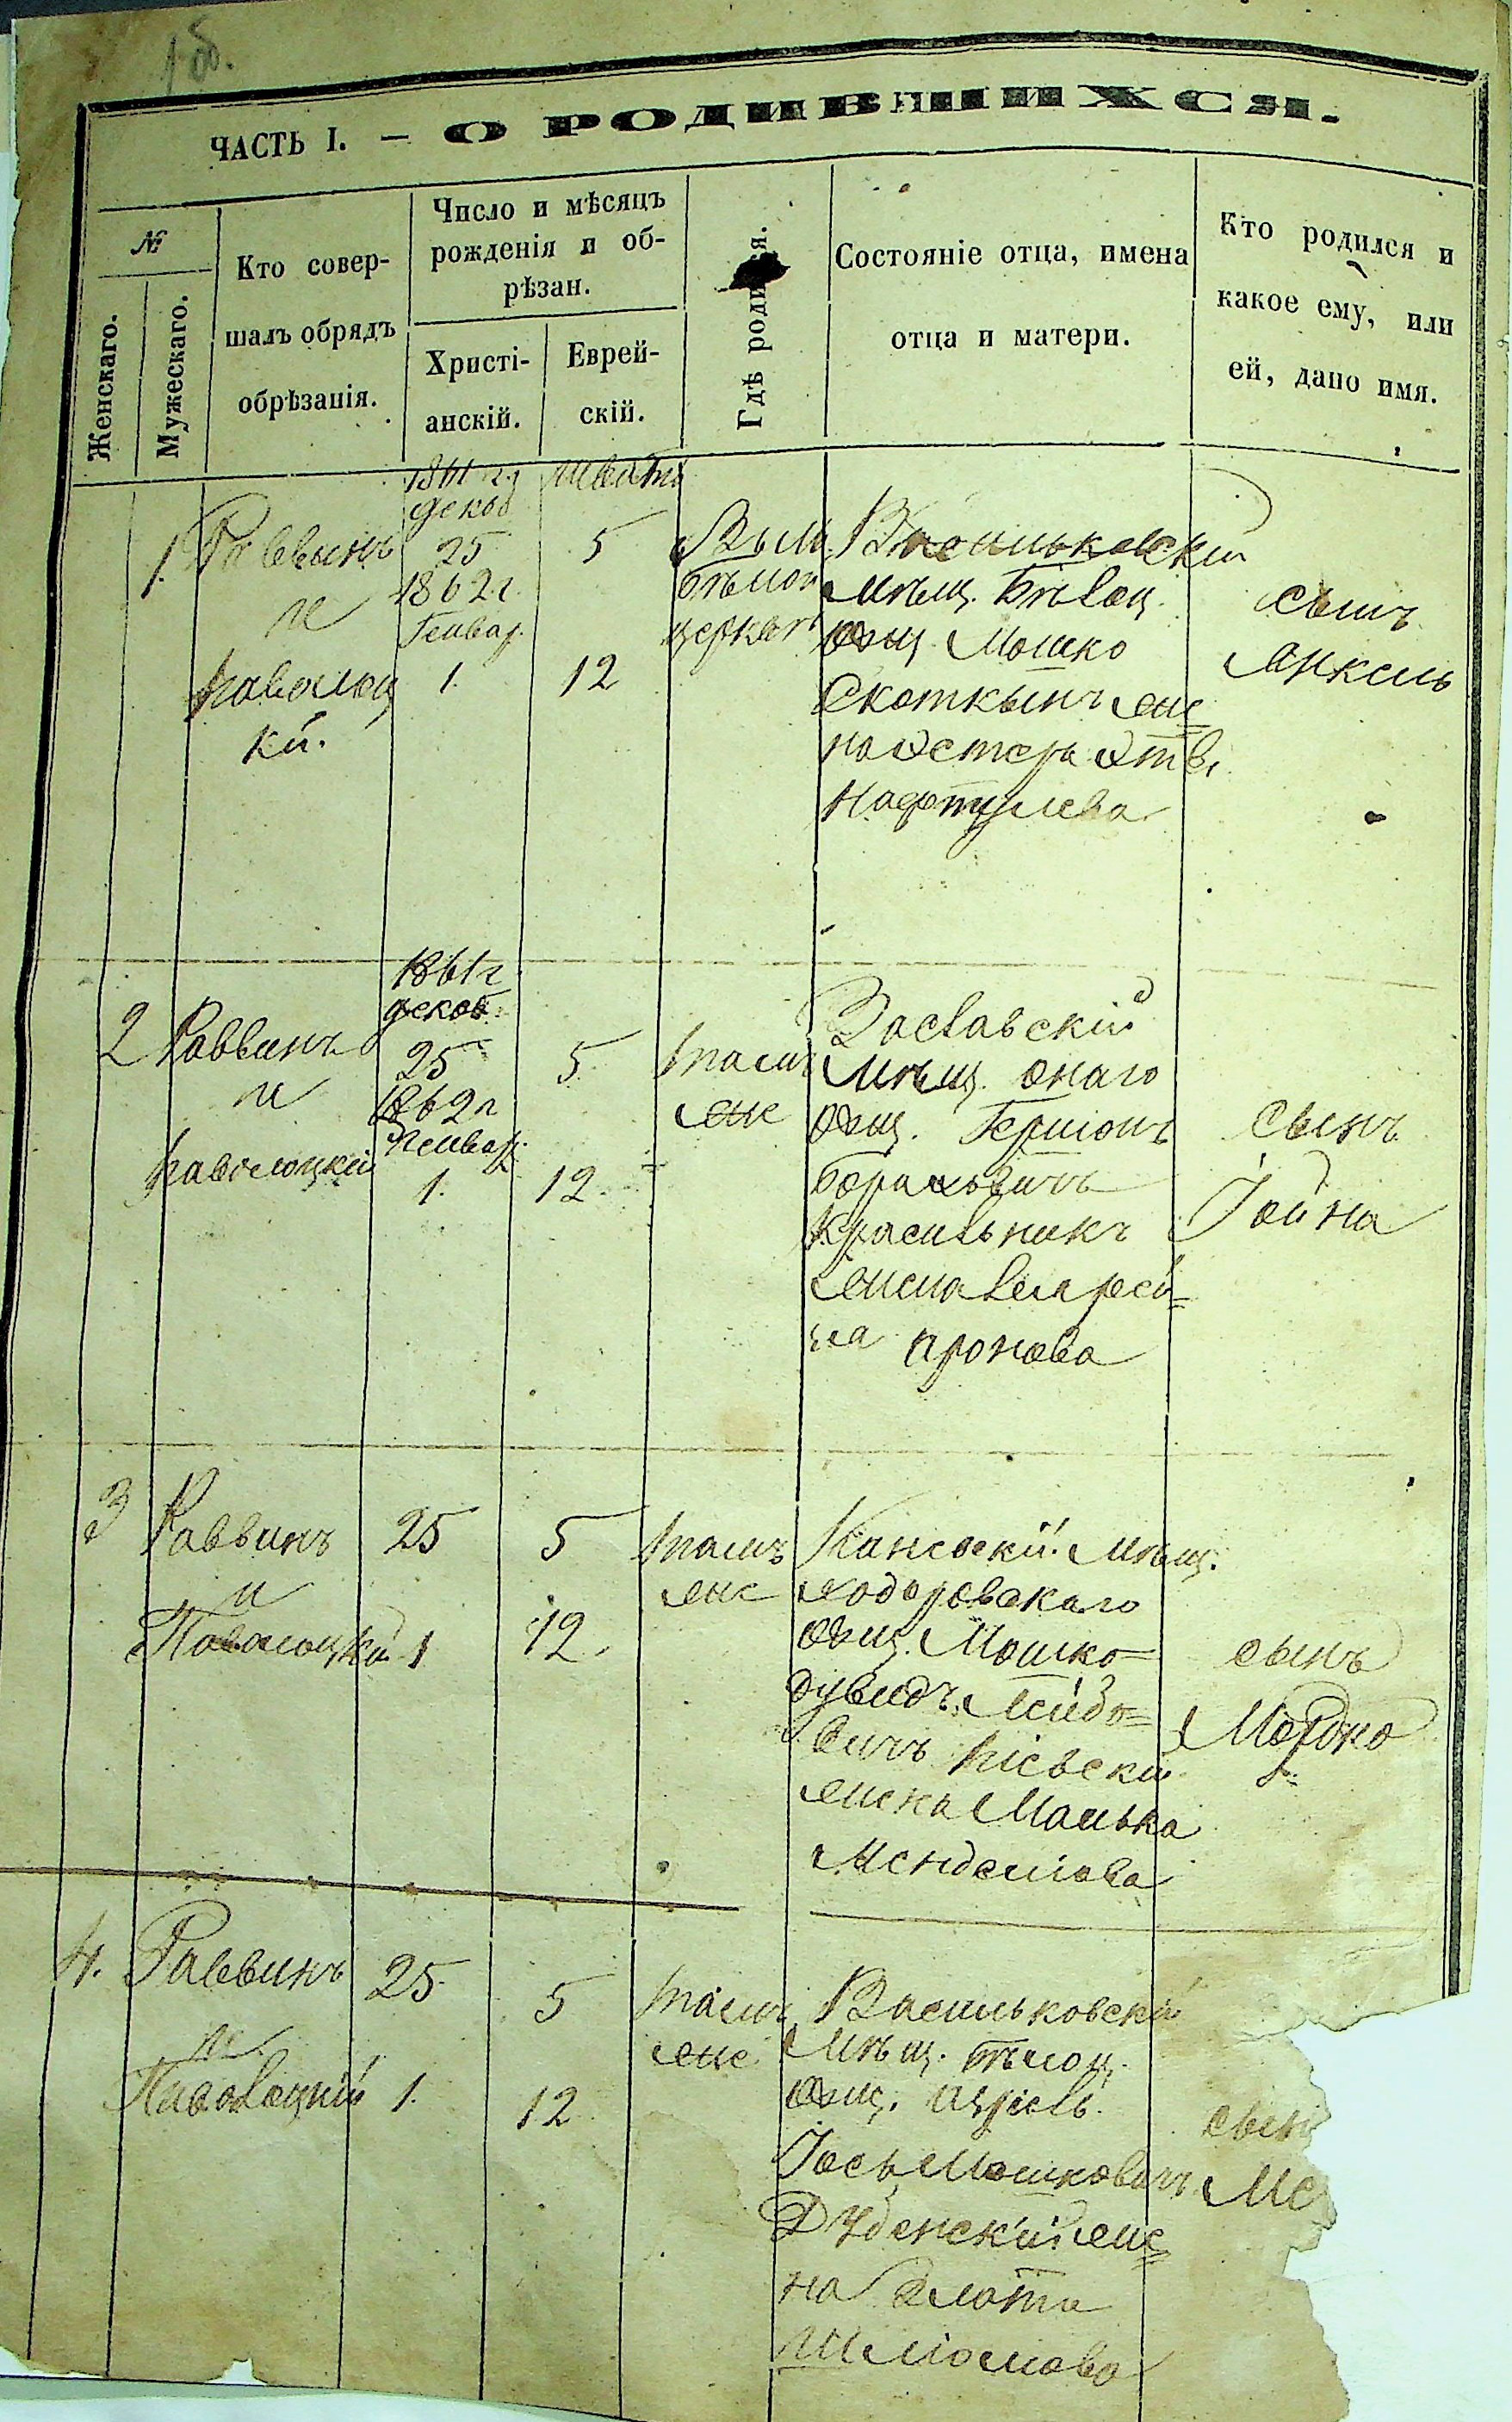 1 об.
ЧАСТЬ I. — О РОДИВШИХСЯ.
№
Женскаго.
Мужескаго.
Кто совер-
шалъ обрядъ
обрѣзанія.
Число и мѣсяцъ
рожденія и об-
рѣзан.
Христі-
анскій.
Еврей-
скій.
Гдѣ родился.
Состояніе отца, имена
отца и матери.
Кто родился и
какое ему, или
ей, дано имя.
1.
Раввинъ
и
Паволоц
кій.
1861 г.
декаб
25
1862 г.
Генвар.
1.
5
12
Бѣлой
церкви
Васильковскій
мѣщ. Бѣлоц.
общ. Мошко
же
на Эстеръ
Нафтулева
сынъ
Анкель
2
Раввинъ
и
Паволоцкій
1861 г
декаб.
25
1862 г
Генвар.
1.
5
12.
тамъ
же
Заславскій
мѣщ. онаго
общ. Гершонъ
Бораховичъ
Красильникъ
жена
на Аронова
сынъ
Іойна
3
Раввинъ
и
Паволоцкій
25
1
5
12.
тамъ
же
Каневскій мѣщ.
ходоровскаго
общ. Мошко-
Дувидъ Лейбо=
вичъ Кіевскій
жена Малька
Менделіова
сынъ
Мордко
4.
Раввинъ
и
Паволоцкій
25
1.
5
12
тамъ
же
Васильковскій
мѣщ. бѣлоц.
общ. Азріель
Іось Мошковичъ
Дубенскій же=
на Злота
Шліомова
сынъ